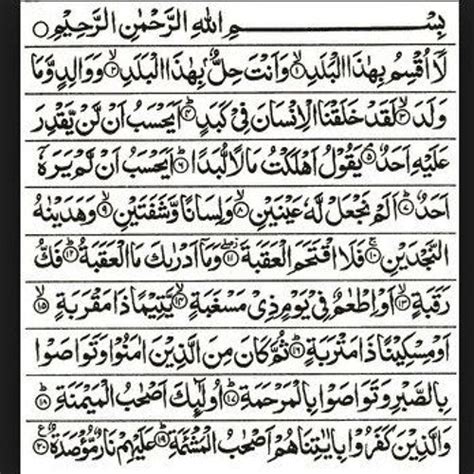 بِسْــــــمِ اللّٰهِ الرَّحْمٰنِ الرَّحِيْمِ ○
لَآ اُقْسِمُ بِهٰذَا الْبَلَدِ ۙ‏﴿۱﴾ وَاَنْتَ حِلٌّۢ بِهٰذَا الْبَلَدِ ۙ‏﴿۲﴾ وَوَالِدٍ وَّمَا
وَلَدَ ۙ‏﴿۳﴾ لَقَدْ خَلَقْنَا الْاِنْسَانَ فِيْ كَبَدٍ ؕ‏﴿۴﴾ اَيَحْسَبُ اَنْ لَّنْ يَّقْدِرَ
عَلَيْهِ اَحَدٌ ۘ‏﴿۵﴾ يَقُوْلُ اَهْلَكْتُ مَالًا لُّبَدًا ؕ‏﴿۶﴾ اَيَحْسَبُ اَنْ لَّمْ يَرَهٗٓ
اَحَدٌ ؕ‏﴿۷﴾ اَلَمْ نَجْعَلْ لَّهٗ عَيْنَيْنِ ۙ‏﴿۸﴾ وَلِسَانًا وَّشَفَتَيْنِ ۙ‏﴿۹﴾ وَهَدَيْنٰهُ
النَّجْدَيْنِ ۚ‏﴿۱۰﴾ فَلَا اقْتَحَمَ الْعَقَبَةَ ۖ‏﴿۱۱﴾ وَمَآ اَدْرٰىكَ مَا الْعَقَبَةُ ؕ‏﴿۱۲﴾ فَكُّ
رَقَبَةٍ ۙ‏﴿۱۳﴾ اَوْ اِطْعٰمٌ فِيْ يَوْمٍ ذِيْ مَسْغَبَةٍ ۙ‏﴿۱۴﴾ يَّتِيْمًا ذَا مَقْرَبَةٍ ۙ‏﴿۱۵﴾
اَوْ مِسْكِيْنًا ذَا مَتْرَبَةٍ ؕ‏﴿۱۶﴾ ثُمَّ كَانَ مِنَ الَّذِيْنَ اٰمَنُوْا وَتَوَاصَوْا
بِالصَّبْرِ وَتَوَاصَوْا بِالْمَرْحَمَةِ ؕ‏﴿۱۷﴾ اُولٰٓئِكَ اَصْحٰبُ الْمَيْمَنَةِ ؕ‏﴿۱۸﴾
وَالَّذِيْنَ كَفَرُوْا بِاٰيٰتِنَا هُمْ اَصْحٰبُ الْمَشْـَٔمَةِ ؕ‏﴿۱۹﴾ عَلَيْهِمْ نَارٌ مُّؤْصَدَةٌ ‏﴿۲۰﴾ ع